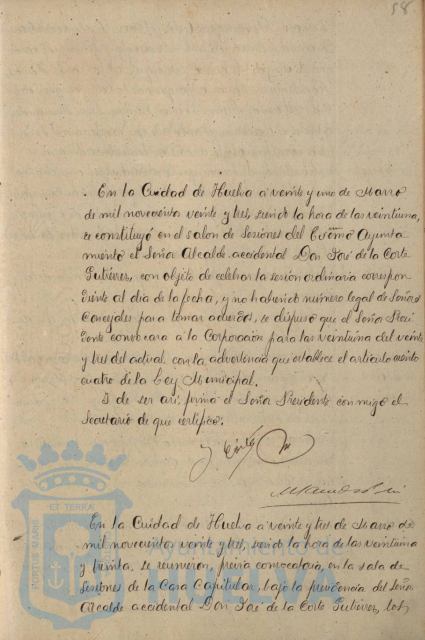 58
En la Ciudad de Huelva a veinte y uno de Marzo
de mil novecientos veinte y tres, siendo la hora de las veintiuna,
se constituyó en el salon de Sesiones del Excmo Ayunta
miento el Señor Alcalde accidental Don José de la Corte
Gutiérrez, con objeto de celebrar la sesion ordinaria correspon
diente al dia de la fecha, y no habiendo número legal de Señores
Concejales para tomar acuerdos, se dispuso que el Señor Presi
dente convocara a la Corporación para las veintiuna del veinte
y tres del actual con la advertencia que establece el articulo ciento
cuatro de la Ley Municipal.
Y de ser asi firma el Señor Presidente conmigo el
Secretario de que certifico.
En la Ciudad de Huelva a veinte y tres de Marzo de
mil novecientos veinte y tres, siendo la hora de las veintiuna
y treinta, se reunieron, previa convocatoria, en la sala de
Sesiones de la Casa Capitular, bajo la presidencia del Señor
Alcalde accidental Don José de la Corte Gutiérrez, los
PORTUS MARIS
ET TERRÆ
Ayuntamiento de
HUELVA